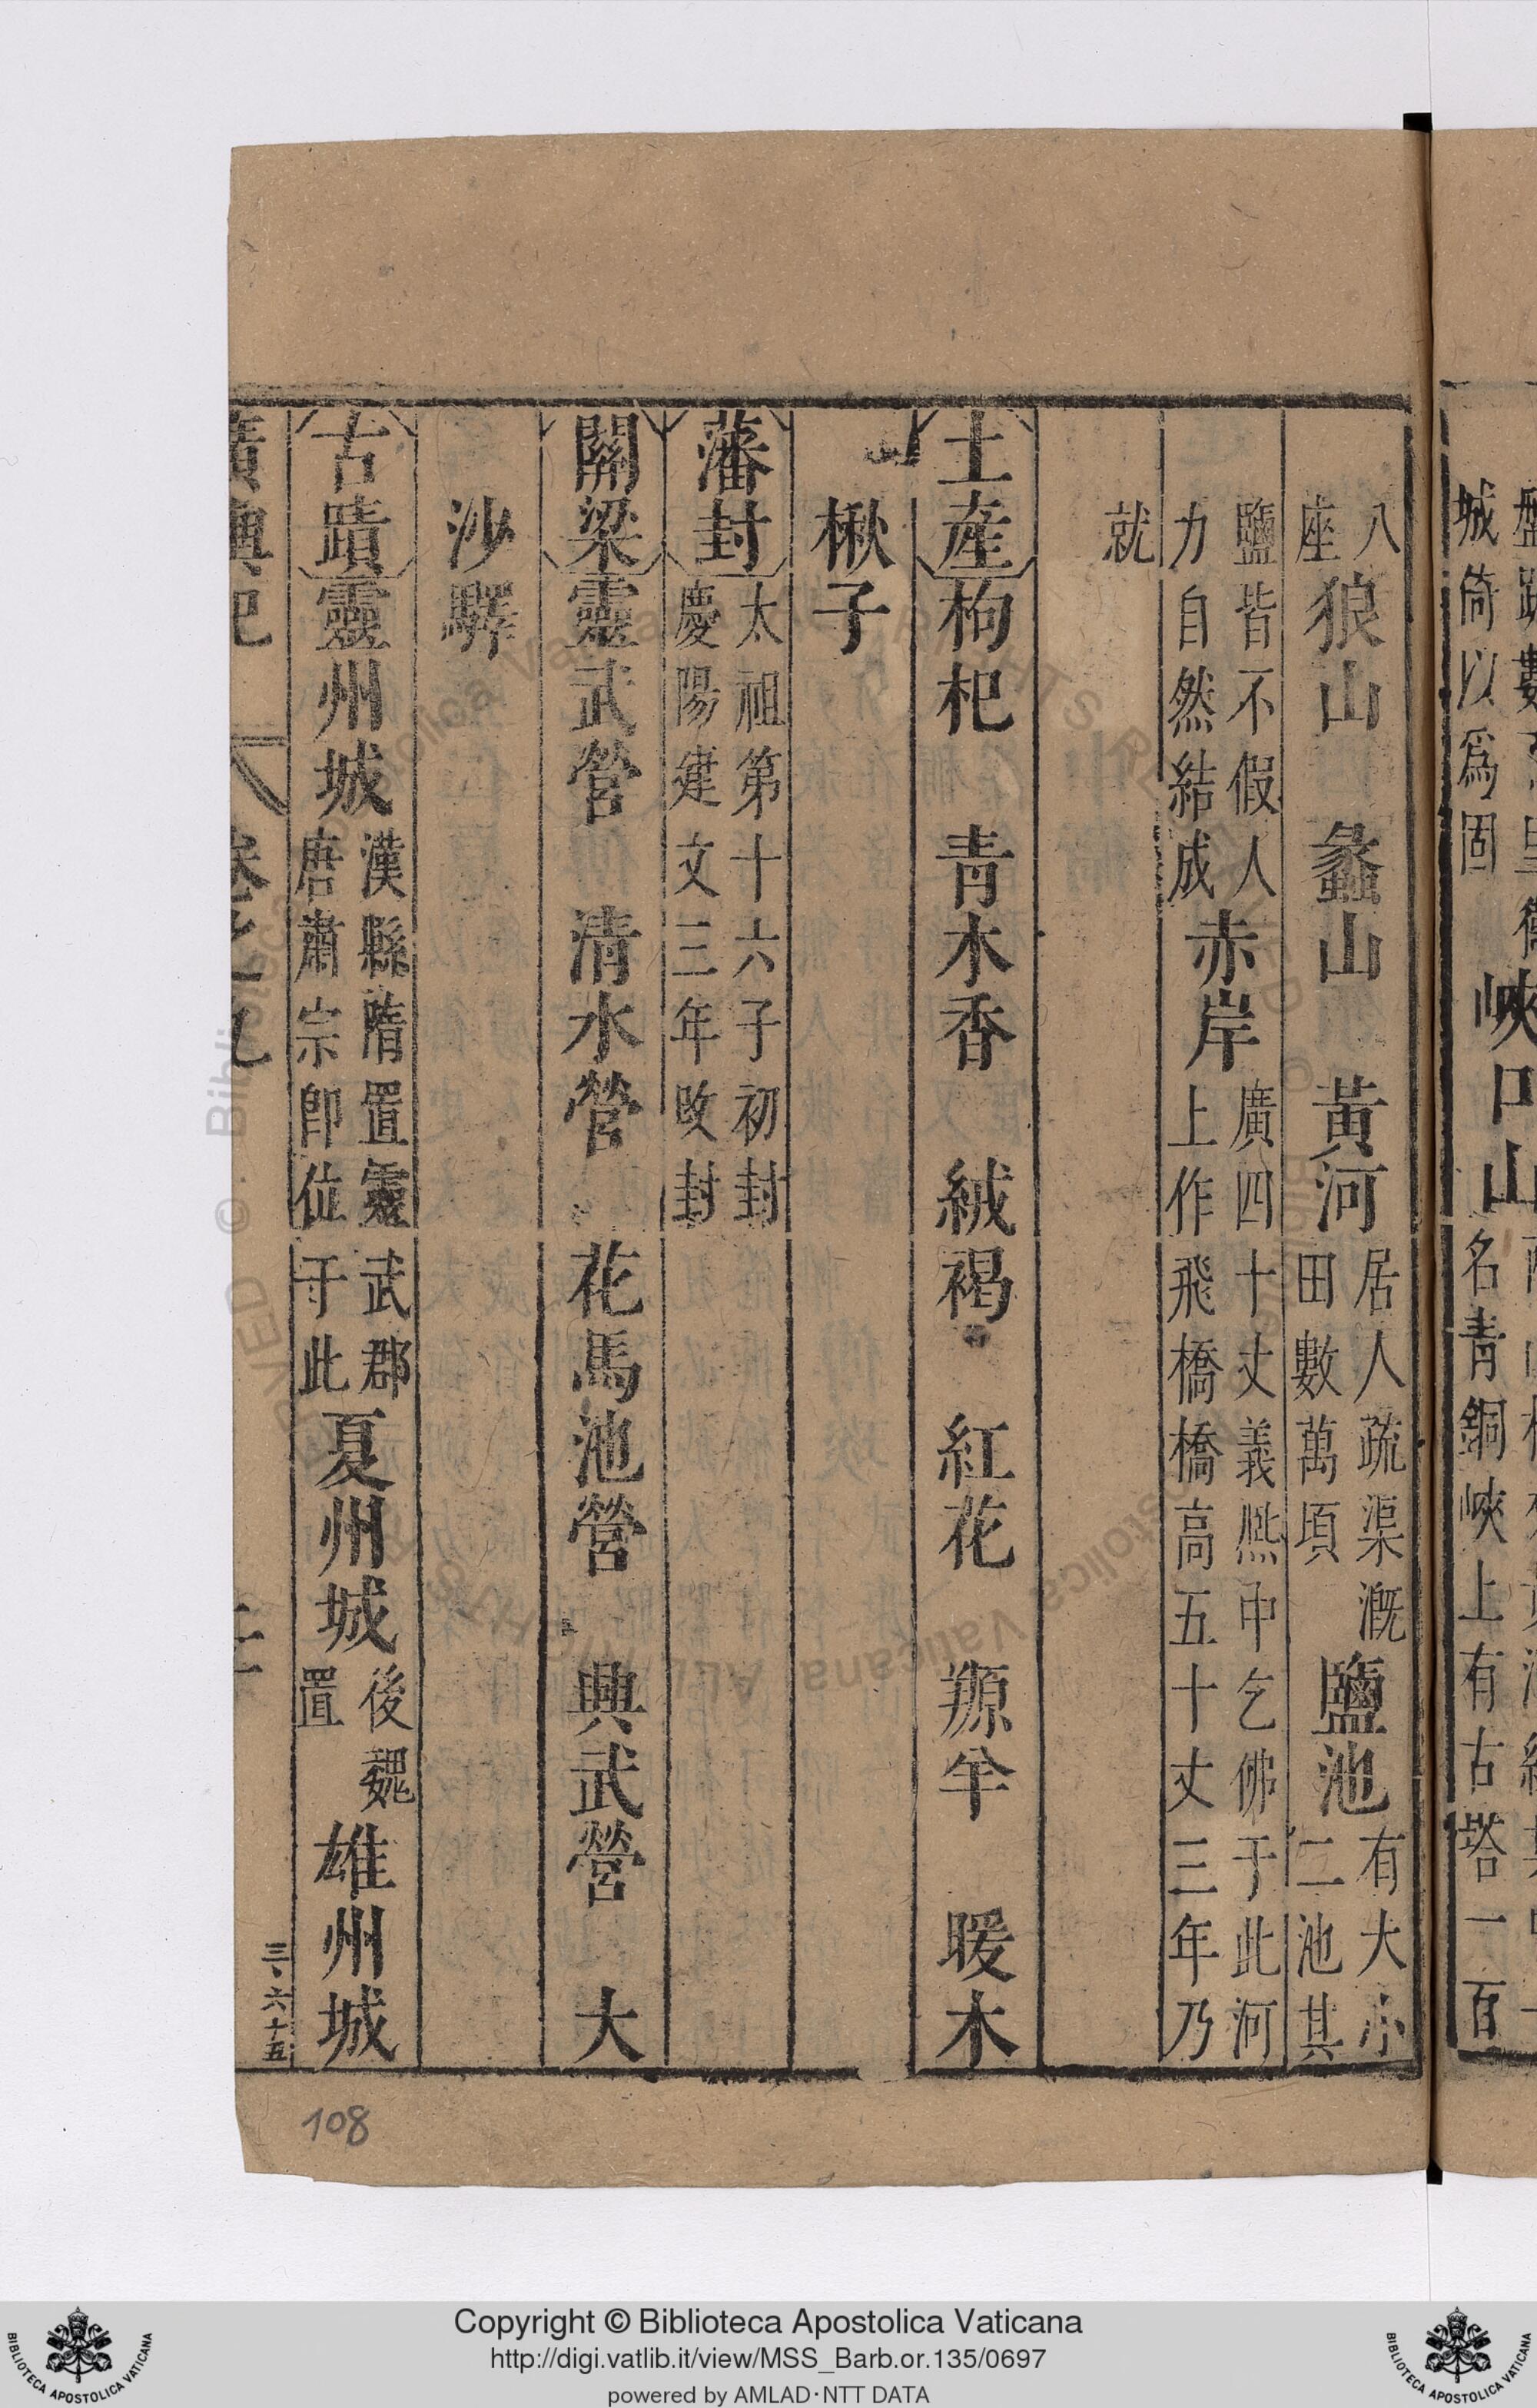 城倚以爲固
峽口山
名青銅峽上有古塔一百
八
座
狼山　蠡山　黃河
居人疏渠漑
田數萬頃
鹽池
有大小
二池其
鹽皆不假人
力自然結成
赤岸
廣四十丈義熈中乞佛于此河
上作飛橋橋高五十丈三年乃
就
土産枸杞　青木香　絨褐　紅花　羱羊　暖木
楸子
藩封
太祖第十六子初封
慶陽建文三年改封
關梁靈武營　清水營　花馬池營　興武營　大
沙驛
古蹟靈州城
漢縣隋置靈武郡
唐肅宗卽位于此
夏州城
後魏
置
雄州城
三、六十五
108
Copyright © Biblioteca Apostolica Vaticana
http://digi.vatlib.it/view/MSS_Barb.or.135/0697
powered by AMLAD·NTT DATA
BIBLIOTECA APOSTOLICA VATICANA
BIBLIOTECA APOSTOLICA VATICANA